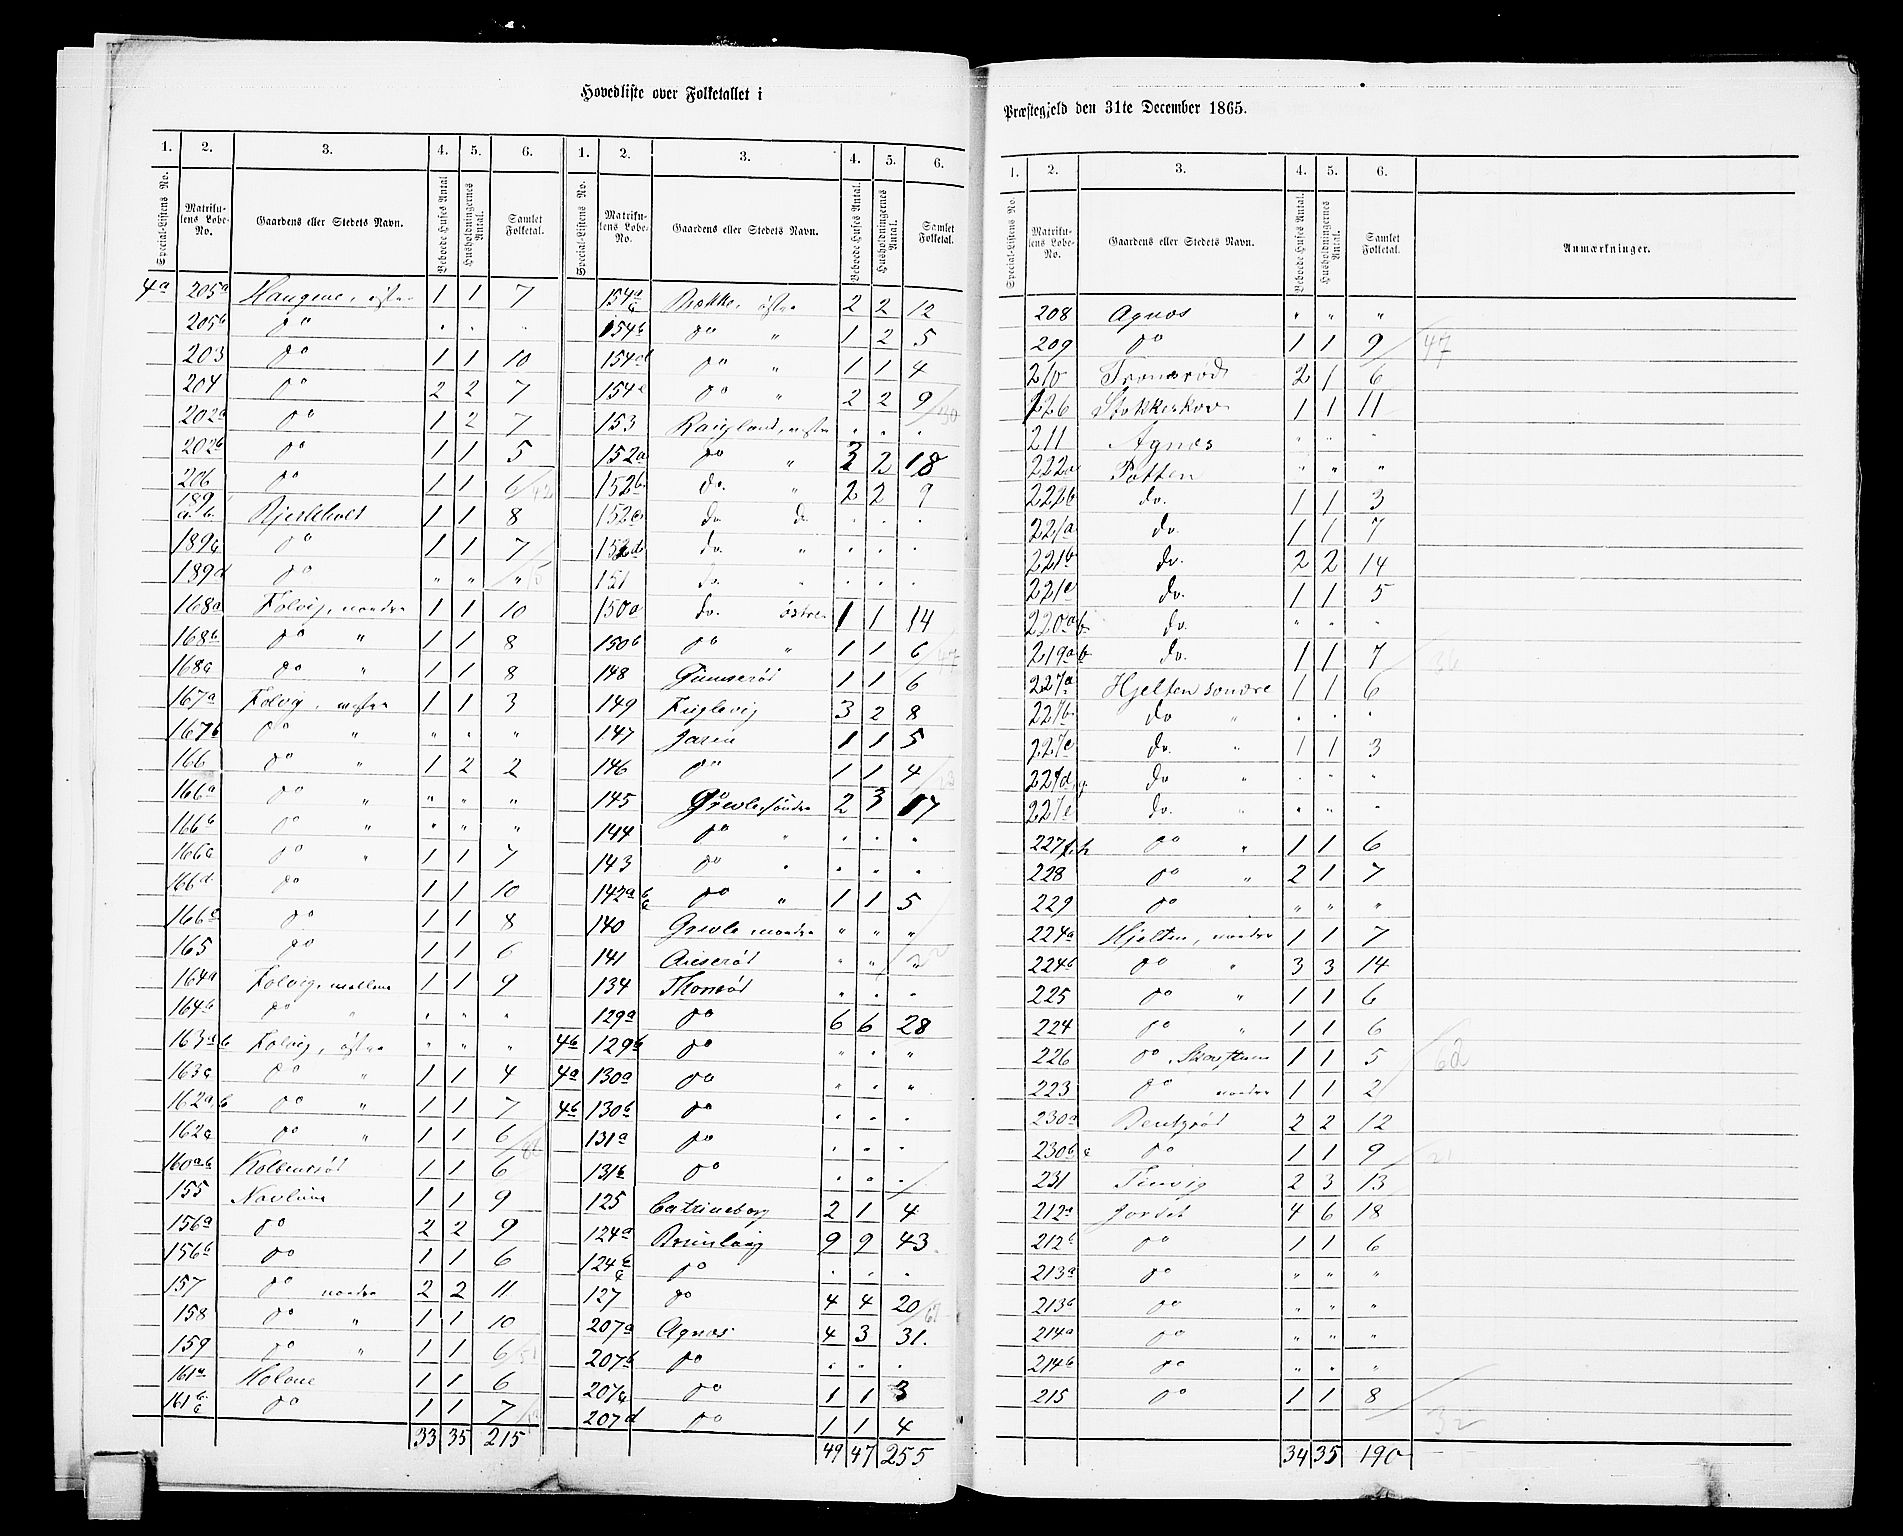 Hovedliste over Folketallet i
Præstegjeld den 31te December 1865.
1. 2. 3. 4. 5. 6. 1. 2. 3. 4. 5. 6.
Special-Listens No. Matrikulens Lobe-No. Gaardens eller Stedets Navn. Beboede Huses Antal Husholdningernes Antal. Samlet Folketal. Special-Listens No. Matrikulens Lobe-No. Gaardens eller Stedets Navn. Beboede Huses Antal. Husholdningernes Antal. Samlet Folketal.
4a 205a Haugene, østre 1 1 7
205b do " " "
203 do 1 1 10
204 do 2 2 7
202a do 1 2 7
202b do 1 1 5
206 do 1 1 6/42
189 a b Bjerkholt 1 1 8
189c do 1 1 7
189d do " " "/15
168a Folvig, nordre 1 1 10
168b do " 1 1 8
168c do " 1 1 8
167a Folvig, vestre 1 1 3
167b do " " " "
166 do " 1 2 2
166a do " " " "
166b do " " " "
166c do " 1 1 7
166d do 1 1 10
166e do 1 1 8
165 do 1 1 6
164a Folvig, mellem 1 1 9
164b do " " " "
163a b Folvig, østre " " "
163c do " 1 1 4
162a, b do " 1 1 7
162c do " 1 1 6/86
160a b Kolbensrød 1 1 6
155 Navlune 1 1 9
156a do 2 2 9
156b do 1 1 6
157 do nordre 2 2 11
158 do " 1 1 10
159 do " 1 1 6/51
161a Holane 1 1 6
161b c do 1 1 7/13
33 35 215
154a c Bakke, østre 2 2 12
154b do " 1 2 5
154d do " 1 1 4
154e do " 2 2 9/30
153 Haugland, vestre " " "
152a do " 3 2 18
152b do. " 2 2 9
152c do do " " "
152d do. " " " "
151 do. " " " "
150a do. østre 1 1 14
150b do " 1 1 6/47
148 Gunnerød 1 1 6
149 Fuglevig 3 2 8
147 Jaren 1 1 5
146 do 1 1 4/23
145 Grevle, søndre 2 3 17
144 do " " " "
143 do " " " "
142a b c do " 1 1 5
140 Grevle nordre " " "
141 Auserød " " "/22
134 Thorsrød " " "
129a do 6 6 28
4b 129b do " " "
4a 130a do " " "
4b 130b do " " "
131a do " " "
131b do " " "
125 Catrineborg 2 1 4
124a Brunlaug 9 9 43
124b c do " " "
127 do 4 4 20/67
207a Agnes 4 3 31.
207b do " " "
207c do 1 1 3
207d do 1 1 4
49 47 255
1. 2. 3. 4. 5. 6.
Special-Listens No. Matrikulens Lobe-No. Gaardens eller Stedets Navn. Beboede Huses Antal. Husholdningernes Antal. Samlet Folketal. Anmærkninger.
208 Agnes " " "
209 do 1 1 9/47
210 Tronsrød 2 1 6
126 Stokkeskov 1 1 11
211 Agnes " " "
222a Potten " " "
222b do. 1 1 3
221a do. 1 1 7
221b do. 2 2 14
221c do. 1 1 5
220a b do. " " "
219a b do. 1 1 7/36
227a Hjelten søndre 1 1 6
227b do " " " "
227c do. " 1 1 3
227d, g. do " " " "
227e do. " " " "
227f. h do " 1 1 6
228 do " 2 1 7
229 do " " "
224a Hjelten, nordre 1 1 7
224b do " 3 3 14
225 do " 1 1 6
224 do " 1 1 6
226 do 1 1 5/62
223 do nordre 1 1 2
230a Bentsrød 2 2 12
230b c do 1 1 9/21
231 Tinvig 2 3 13
212a Jordet 4 6 18
212b do 1 1 6
213a do " " "
213b do " " "
214a do " " "
214b do " " "
215 do 1 1 8
32
34 35 190